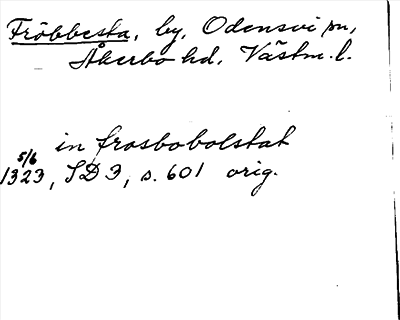 Fröbbesta, by, Odensvi sn,
Åkerbo hd, Västm. l.
in frosbobolstat
5/6
1323, SD 3, s. 601 orig.